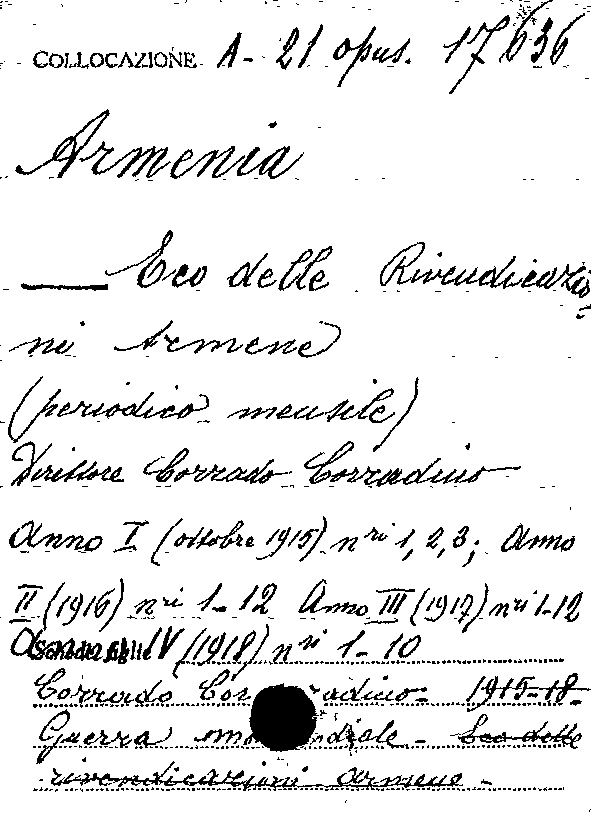 COLLOCAZIONE A - 21 opus. 17636
Armenia
—— Eco delle Rivendicazio-
ni Armene
(periodico mensile)
Direttore Corrado Corradino
Anno I (ottobre 1915) nri 1, 2, 3; Anno
II (1916) nri 1-12 Anno III (1917) nri 1-12
Anno IV (1918) nri 1-10
Corrado Corradino - 1915-18 -
Guerra mondiale - Eco delle
rivendicazioni armene -